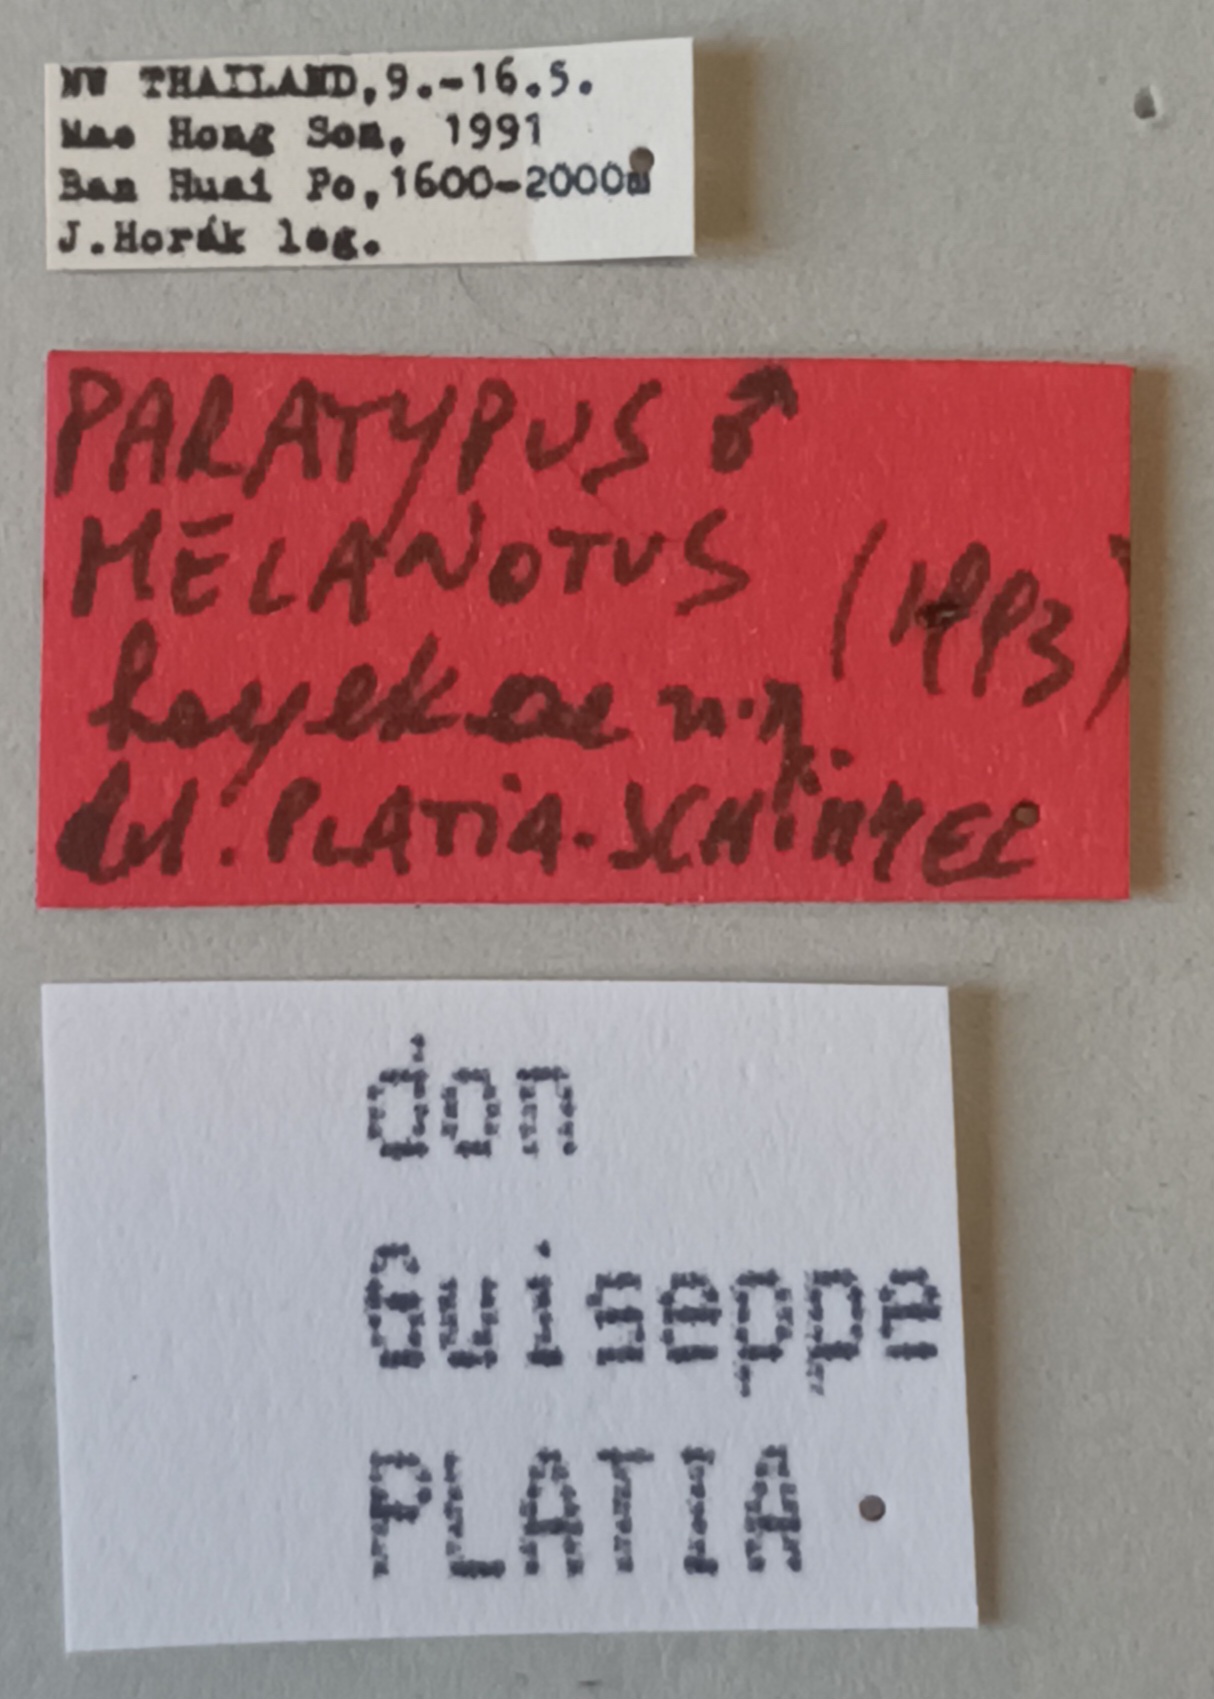 NW THAILAND,9.-16.5.
Mae Hong Son, 1991
Ban Huai Po,1600-2000m
J.Horák leg.
PARATYPUS ♂
MELANOTUS (1993)
hayekae n.n.
det. PLATIA-SCHIMMEL
don
Guiseppe
PLATIA